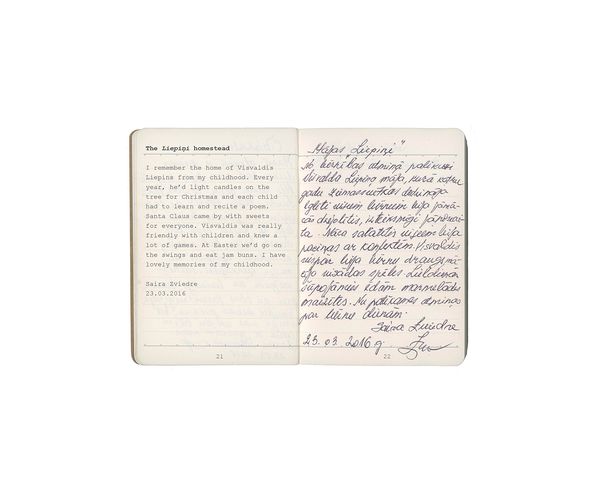 The Liepiņi homestead
I remember the home of Visvaldis
Liepins from my childhood. Every
year, he'd light candles on the
tree for Christmas and each child
had to learn and recite a poem.
Santa Claus came by with sweets
for everyone. Visvaldis was really
friendly with children and knew a
lot of games. At Easter we'd go on
the swings and eat jam buns. I have
lovely memories of my childhood.
Saira Zviedre
23.03.2016
21
Mājas "Liepiņi"
No bērnības atmiņā palikusi
Visvalda Liepiņa māja, kurā katru
gadu Ziemassvētkos dedzināja
eglīti visiem bērniem bija jāmā-
cās dzejolītis,
ta. salatētis visiem bija
paciņas ar konfektēm. Visvaldis
bija bērnu draugs
visādas spēles Lieldienās
šūpojāmies ēdām marmelādes
maizītes. atmiņas
par bērnu dienām.
Saira Zviedre
23. 03. 2016 g.
22